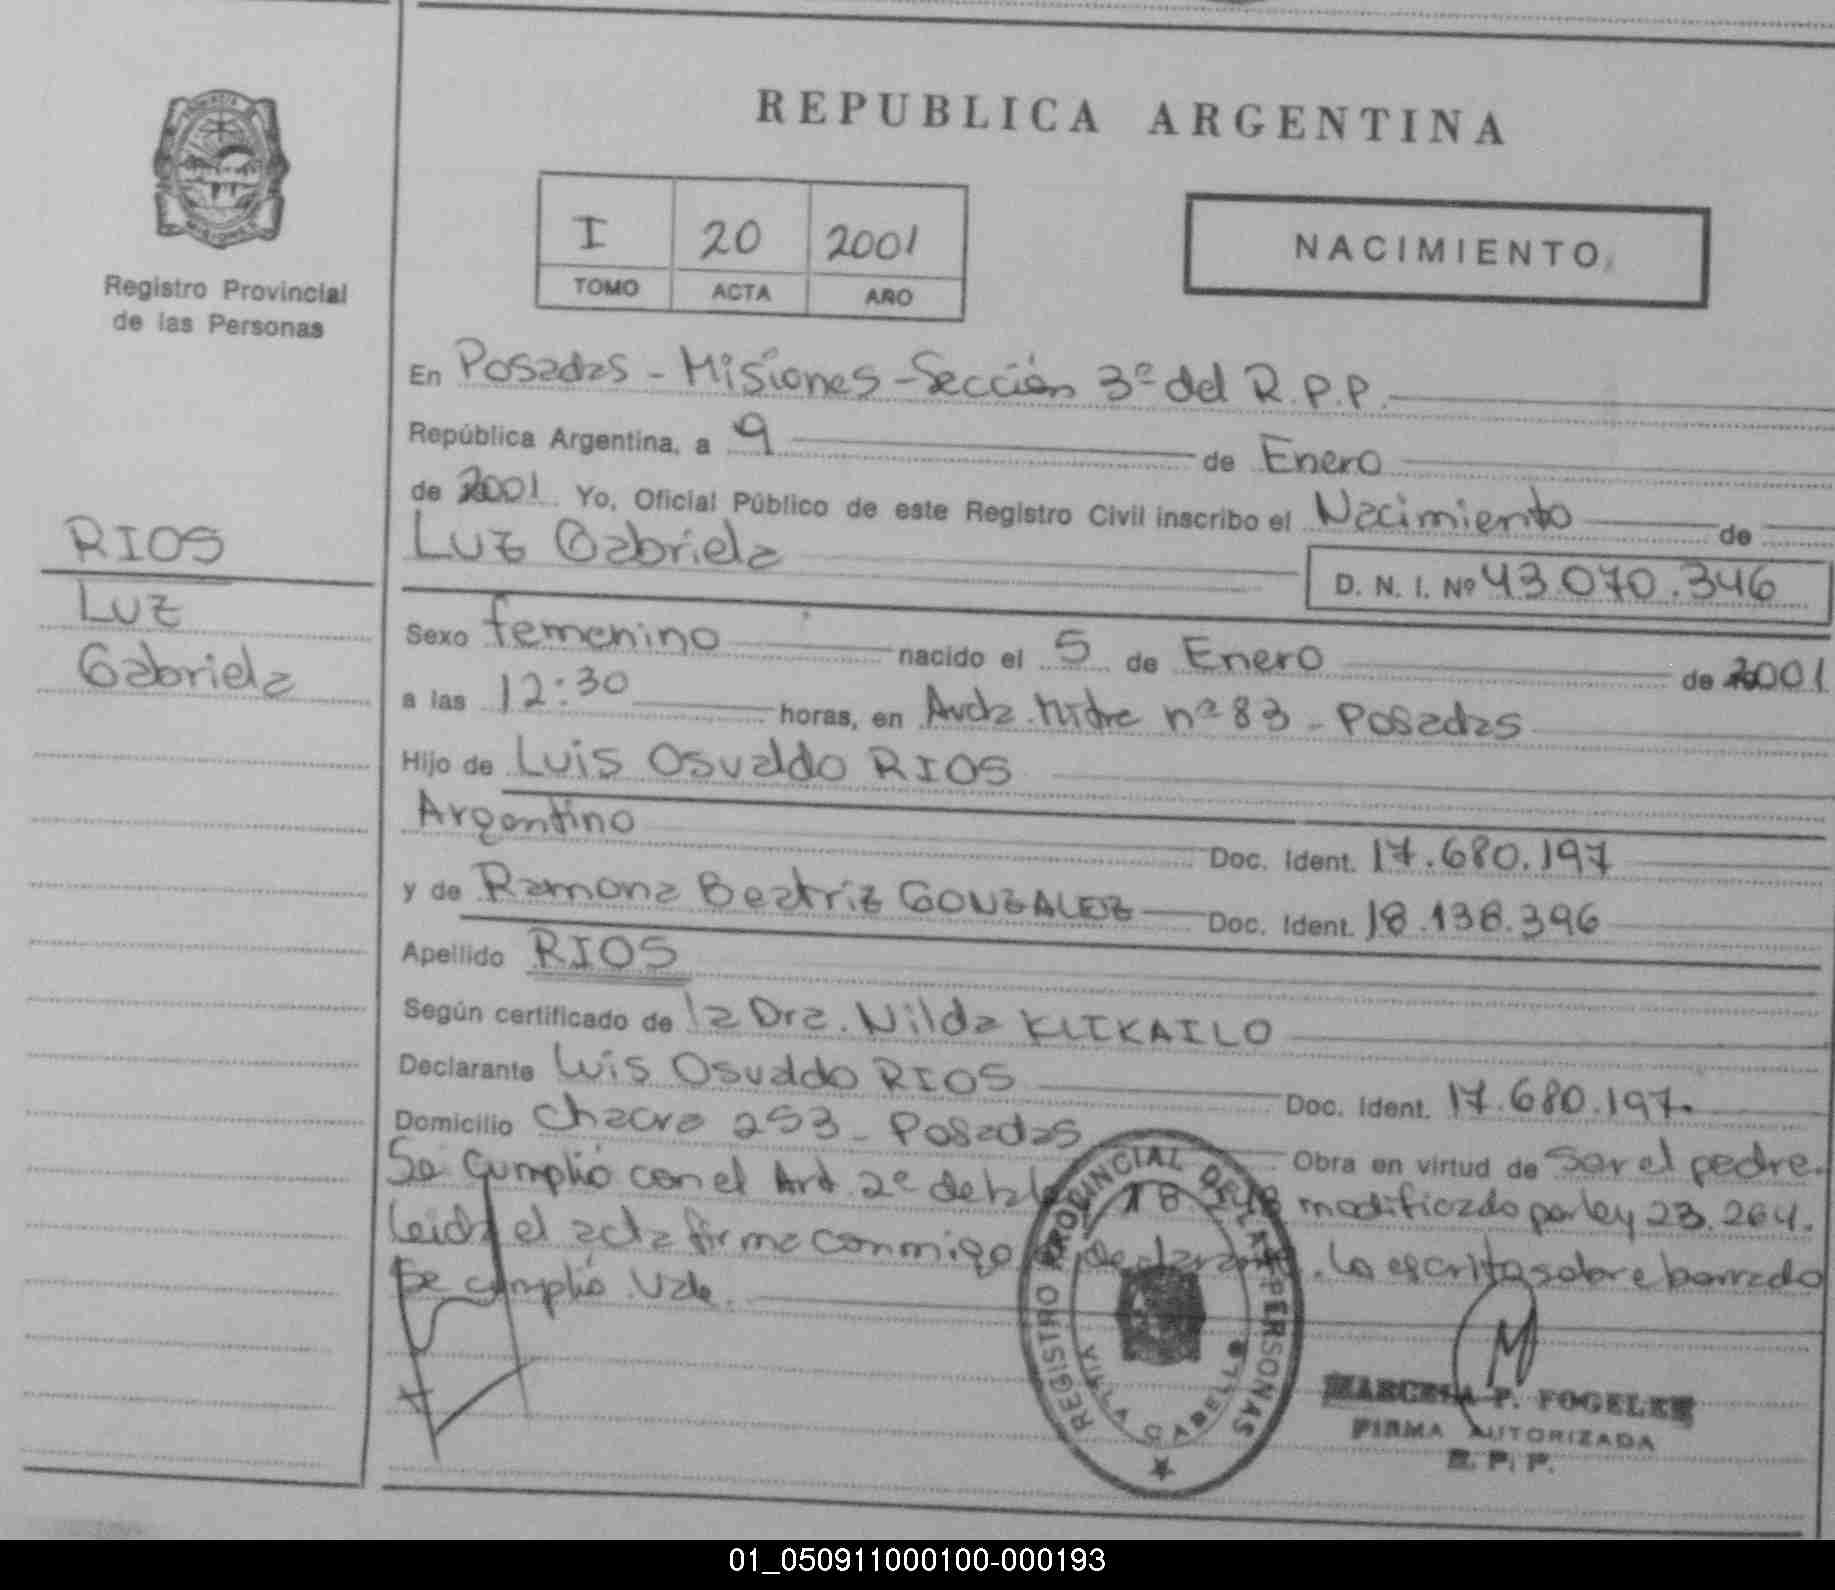 REPUBLICA ARGENTINA
Registro Provincial
de las Personas
I 20 2001
TOMO ACTA AÑO
NACIMIENTO
En Posadas - Misiones - Sección 3ª del R.P.P.
República Argentina, a 9 de Enero
de 2001 Yo, Oficial Público de este Registro Civil inscribo el Nacimiento de
Luz Gabriela
D. N. I. Nº 43.070.346
RIOS
Luz
Gabriela
Sexo femenino nacido el 5 de Enero de 2001
a las 12:30 horas, en Avda. Mitre nº 83 - Posadas
Hijo de Luis Osvaldo RIOS
Argentino Doc. Ident. 17.680.197
y de Ramona Beatriz GONZALEZ Doc. Ident. 18.138.396
Apellido RIOS
Según certificado de la Dra. Nilda KLIKAILO
Declarante Luis Osvaldo RIOS Doc. Ident. 17.680.197.
Domicilio Chacra 253 - Posadas Obra en virtud de Ser el padre.
Se cumplió con el Art. 2º de la modificado por ley 23.264.
Leida el acta firma conmigo declarante. Lo escrito sobre borrado
Se cumplió. Vale.
REGISTRO PROVINCIAL DE LAS PERSONAS
VILLA CABELLO
MARCELA P. FOGELER
FIRMA AUTORIZADA
R. P. P.
01_050911000100-000193